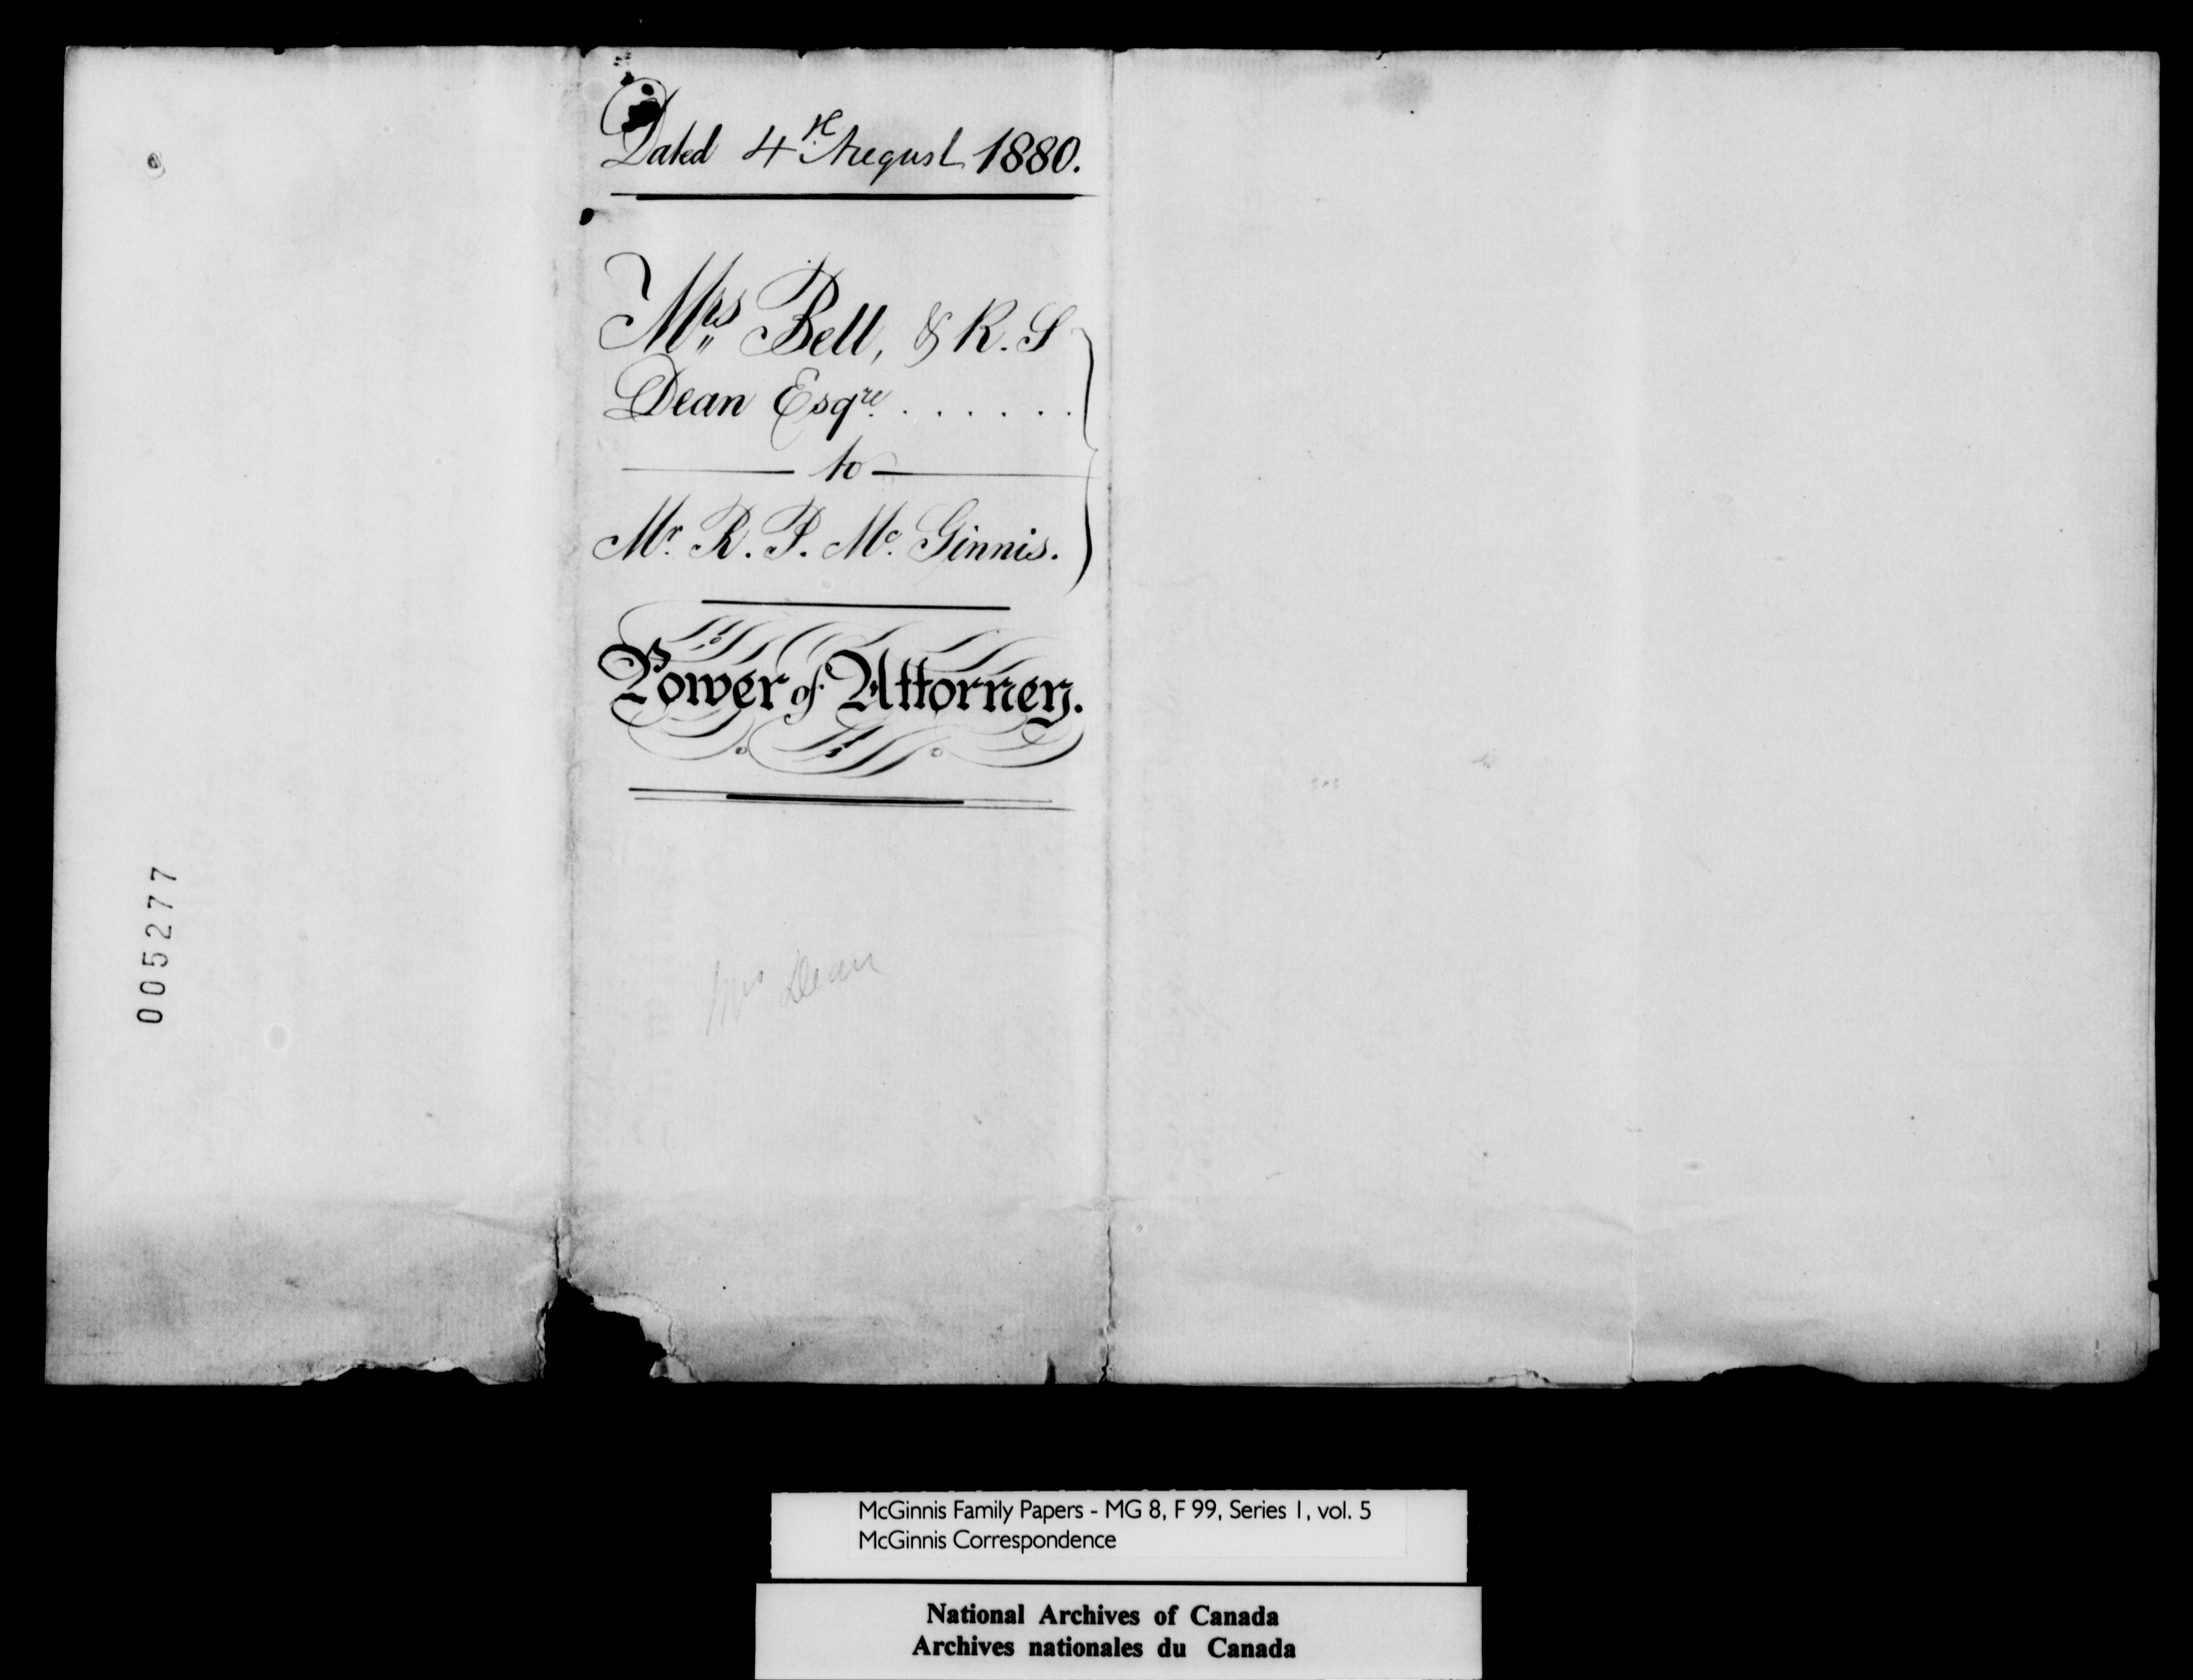 Dated 4th August 1880.
Mrs Bell, & R. S
Dean Esqre. . . . . . .
to
Mr. R. P. Mc. Ginnis.
Power of Attorney.
Mrs Dean
005277
McGinnis Family Papers - MG 8, F 99, Series 1, vol. 5
McGinnis Correspondence
National Archives of Canada
Archives nationales du Canada